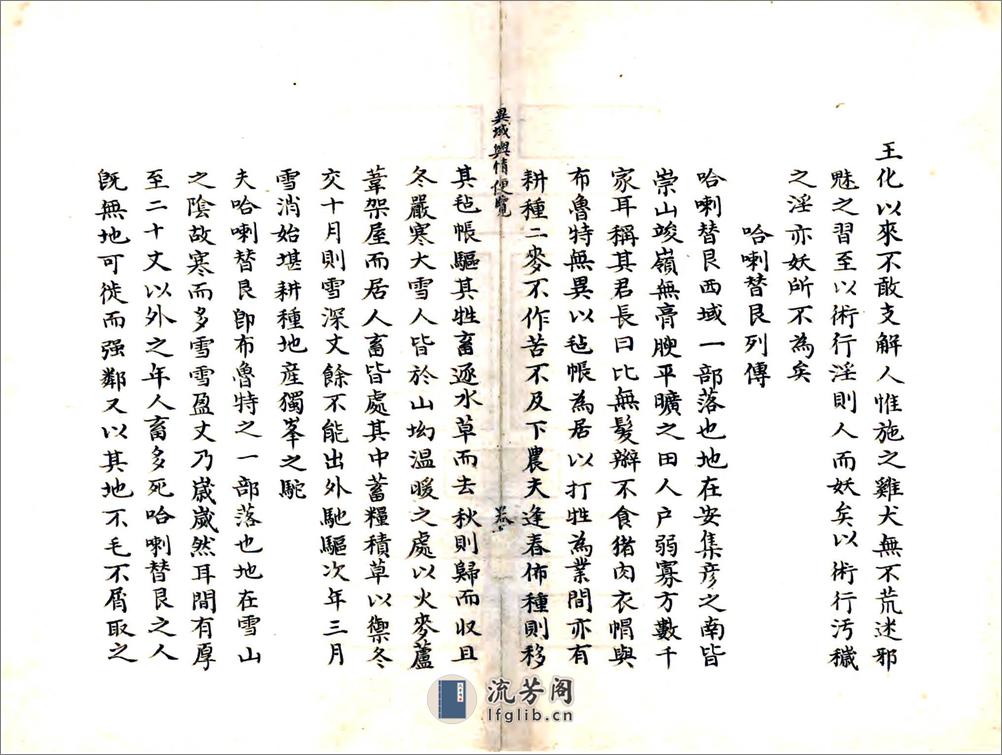 王化以來不敢支解人惟施之雞犬無不荒迷邪
魅之習至以術行淫則人而妖矣以術行汚穢
之淫亦妖所不為矣
哈喇替艮列傳
哈喇替艮西域一部落也地在安集彥之南皆
崇山竣嶺無膏腴平曠之田人戶弱寡方數千
家耳稱其君長曰比無髮辮不食猪肉衣帽與
布魯特無異以毡帳為居以打牲為業間亦有
耕種二麥不作苦不及下農夫逢春佈種則移
異域輿情便覽
卷
其毡帳驅其牲畜逐水草而去秋則歸而収且
冬嚴寒大雪人皆於山坳温暖之處以火麥蘆
葦架屋而居人畜皆處其中蓄糧積草以禦冬
交十月則雪深丈餘不能出外馳驅次年三月
雪消始堪耕種地産獨峯之駝
夫哈喇替艮卽布魯特之一部落也地在雪山
之陰故寒而多雪雪盈丈乃歲歲然耳間有厚
至二十丈以外之年人畜多死哈喇替艮之人
旣無地可徙而强鄰又以其地不毛不屑取之
流芳阁
lfglib.cn